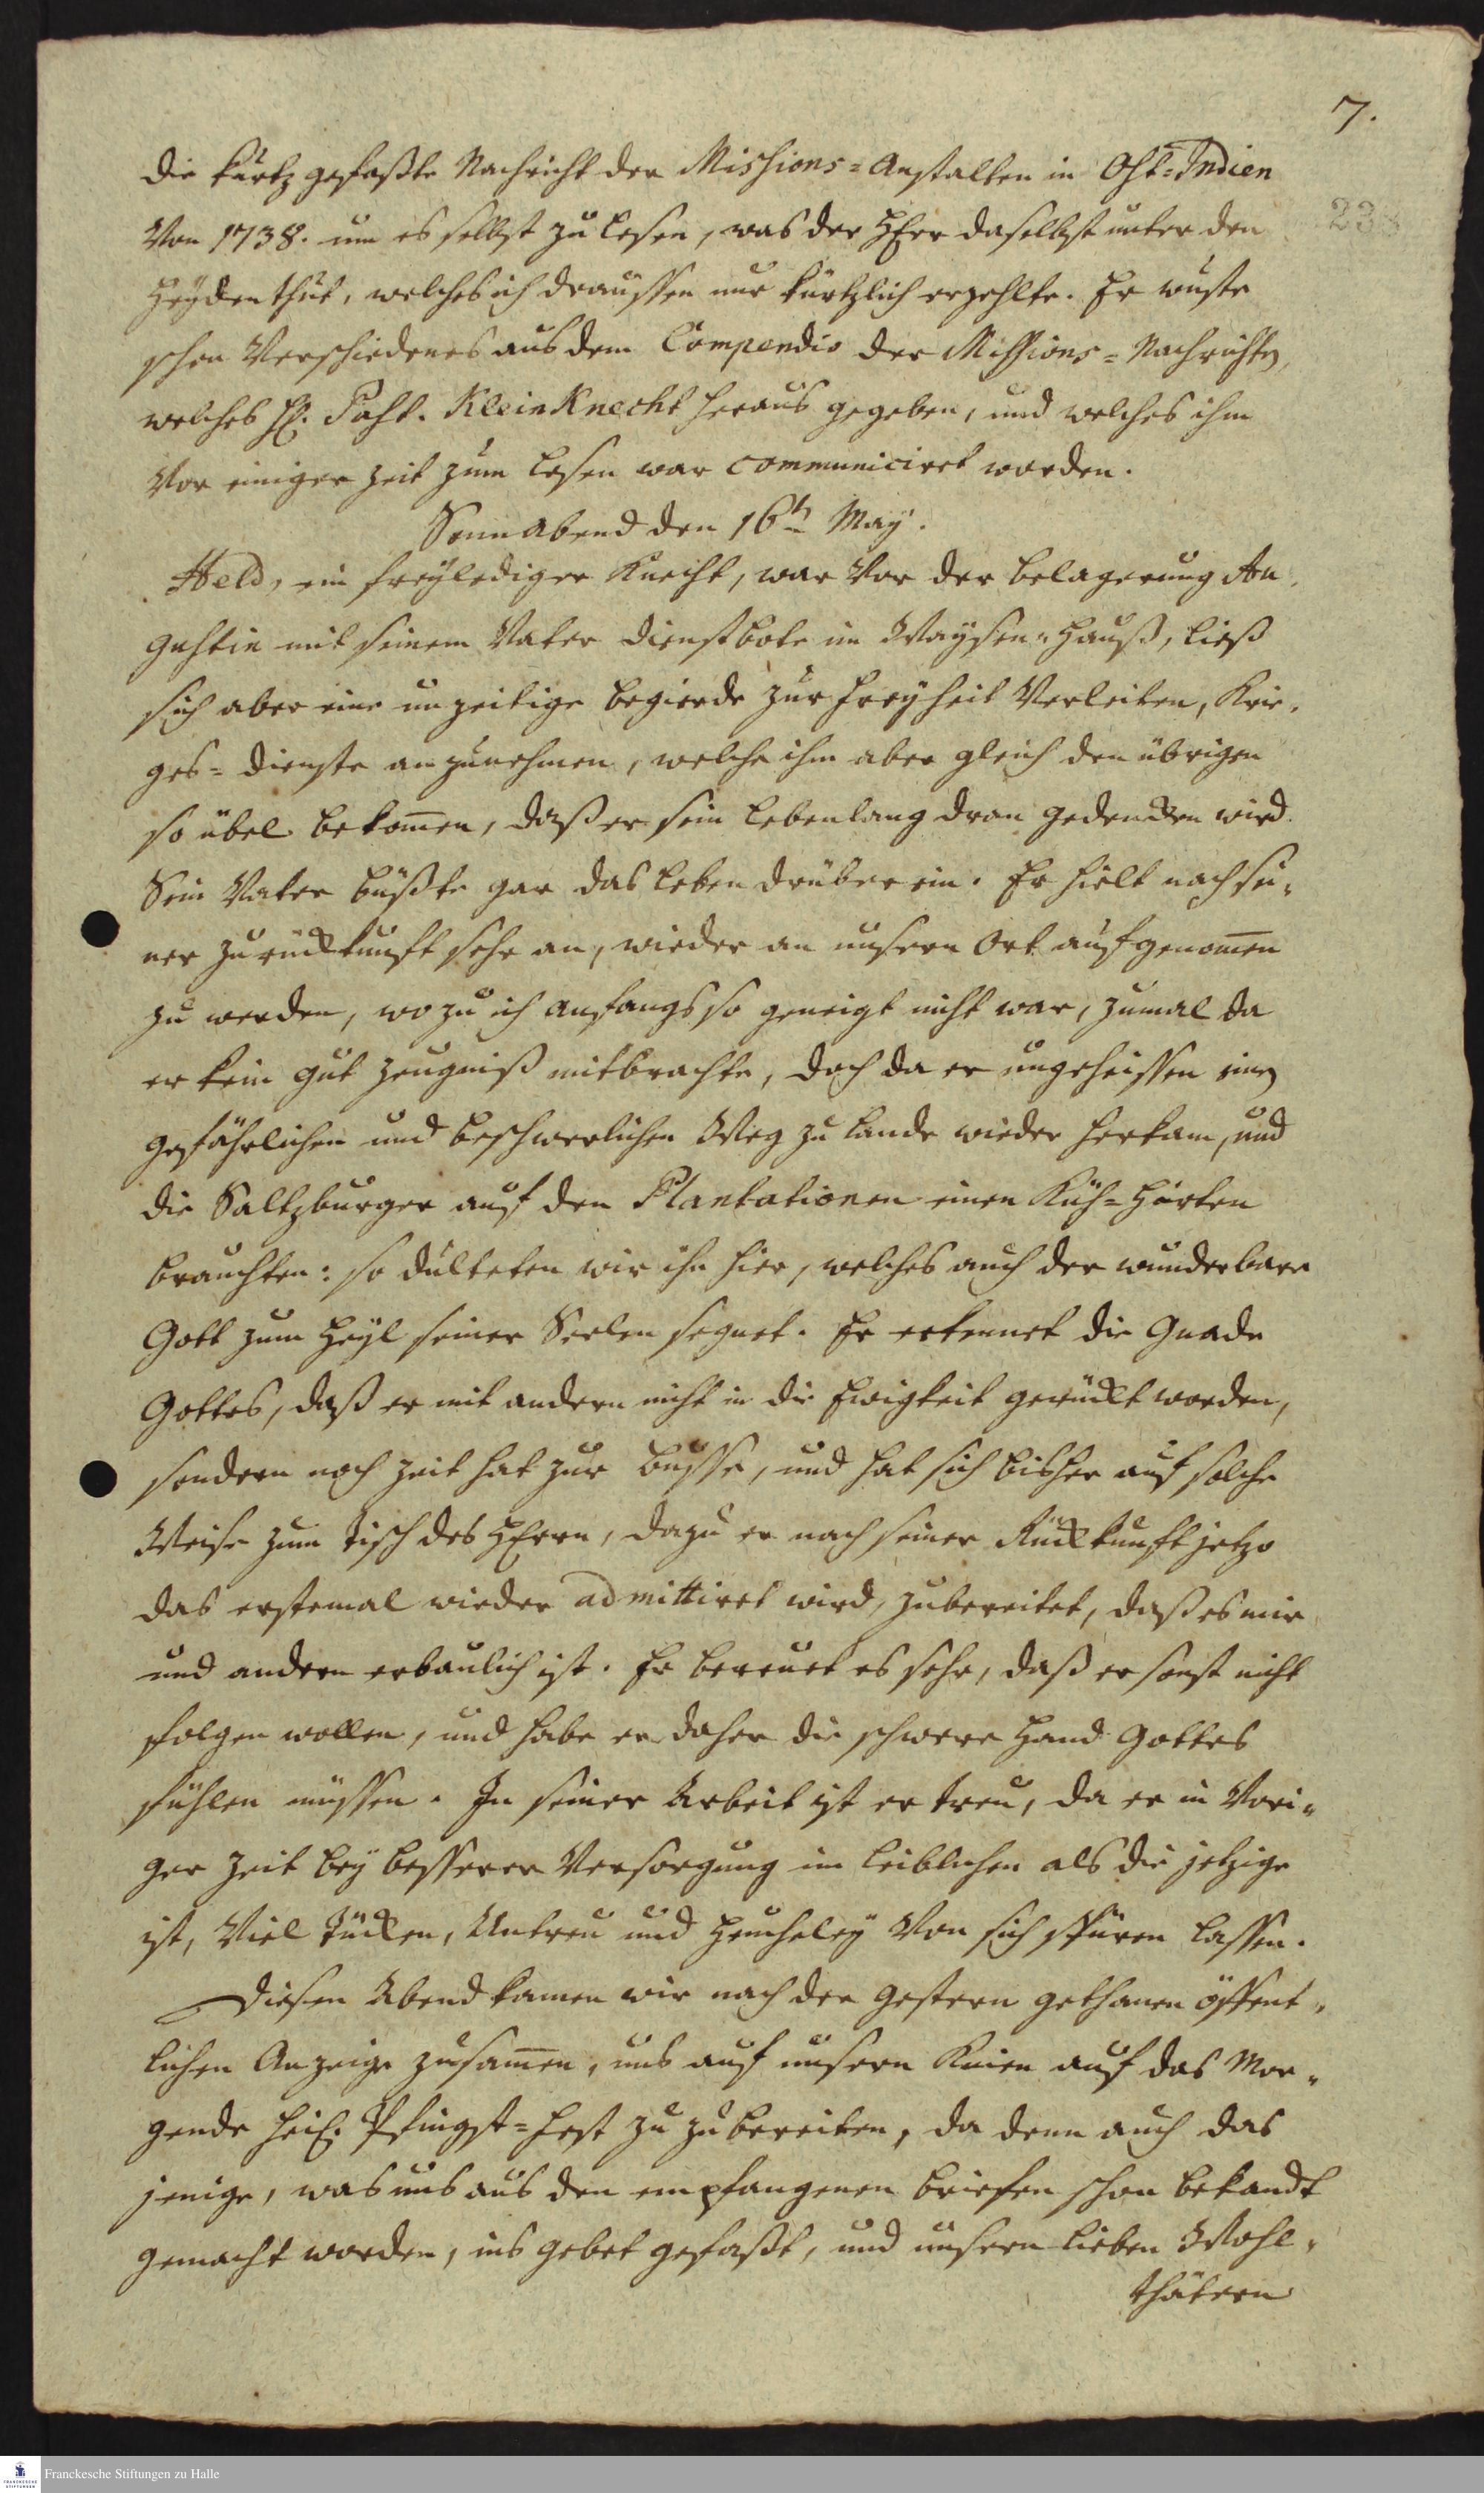 7.
die kurtz gefaßte Nachricht der Missions=Anstalten in Ost=Indien
Von 1738. um es selbst zu lesen, was der HErr daselbst unter den
Heyden thut, welches ich draussen nur kürtzlich erzehlte. Er wuste
schon Verschiedenes aus dem Compendio der Missions=Nachrichten,
welches H. Past. KleinKnecht heraus gegeben, und welches ihm
Vor einiger Zeit zum Lesen war communiciret worden.
Sonnabend den 16ten May.
Held, ein freylediger Knecht, war Vor der belagerung Au-
gustin mit seinem Vater dienstbote im Waysen-Hauß, ließ
sich aber eine unzeitige begierde zur Freyheit Verleiten, Krie-
ges=dienste anzunehmen, welche ihm aber gleich den übrigen
so übel bekom̄en, daß er sein Lebenlang dran gedencken wird.
Sein Vater büßte gar das Leben drüber ein. Er hielt nach sei-
ner Zurückkunft sehr an, wieder an unsern Ort aufgenom̄en
zu werden, wozu ich anfangs so geneigt nicht war, zumal da
er kein gut Zeugniß mitbrachte, doch da er ungeheissen einen
gefährlichen und beschwerlichen Weg zu Lande wieder herkam, und
die Saltzburger auf den Plantationen einen Küh=Hirten
brauchten: so dulteten wir ihn hier, welches auch der wunderbare
Gott zum Heyl seiner Seelen segnet. Er erkennet die Gnade
Gottes, daß er mit andern nicht in die Ewigkeit gerückt worden,
sondern noch Zeit hat zur Busse, und hat sich bisher auf solche
Weise zum Tisch des HErrn, dazu er nach seiner Rückkunft jetzo
das erstemal wieder admittiret wird, zubereitet, daß es mir
und andern erbaulich ist. Er bereuet es sehr, daß er sonst nicht
folgen wollen, und habe er daher die schwere Hand Gottes
fühlen müssen. In seiner Arbeit ist er treu, da er in Vori-
ger Zeit bey besserer Versorgung im leiblichen als die jetzige
ist, Viel Tücken, Untreu und Heucheley Von sich spüren lassen.
Diesen Abend kamen wir nach der gestern gethanen öffent-
lichen Anzeige zusam̄en, uns auf unsern Knien auf das Mor-
gende heil. Pfingst=Fest zu zubereiten, da denn auch das
jenige, was uns aus den empfangenen briefen schon bekandt
gemacht worden, ins gebet gefaßt, und unsern lieben Wohl-
thätern
Franckesche Stiftungen zu Halle